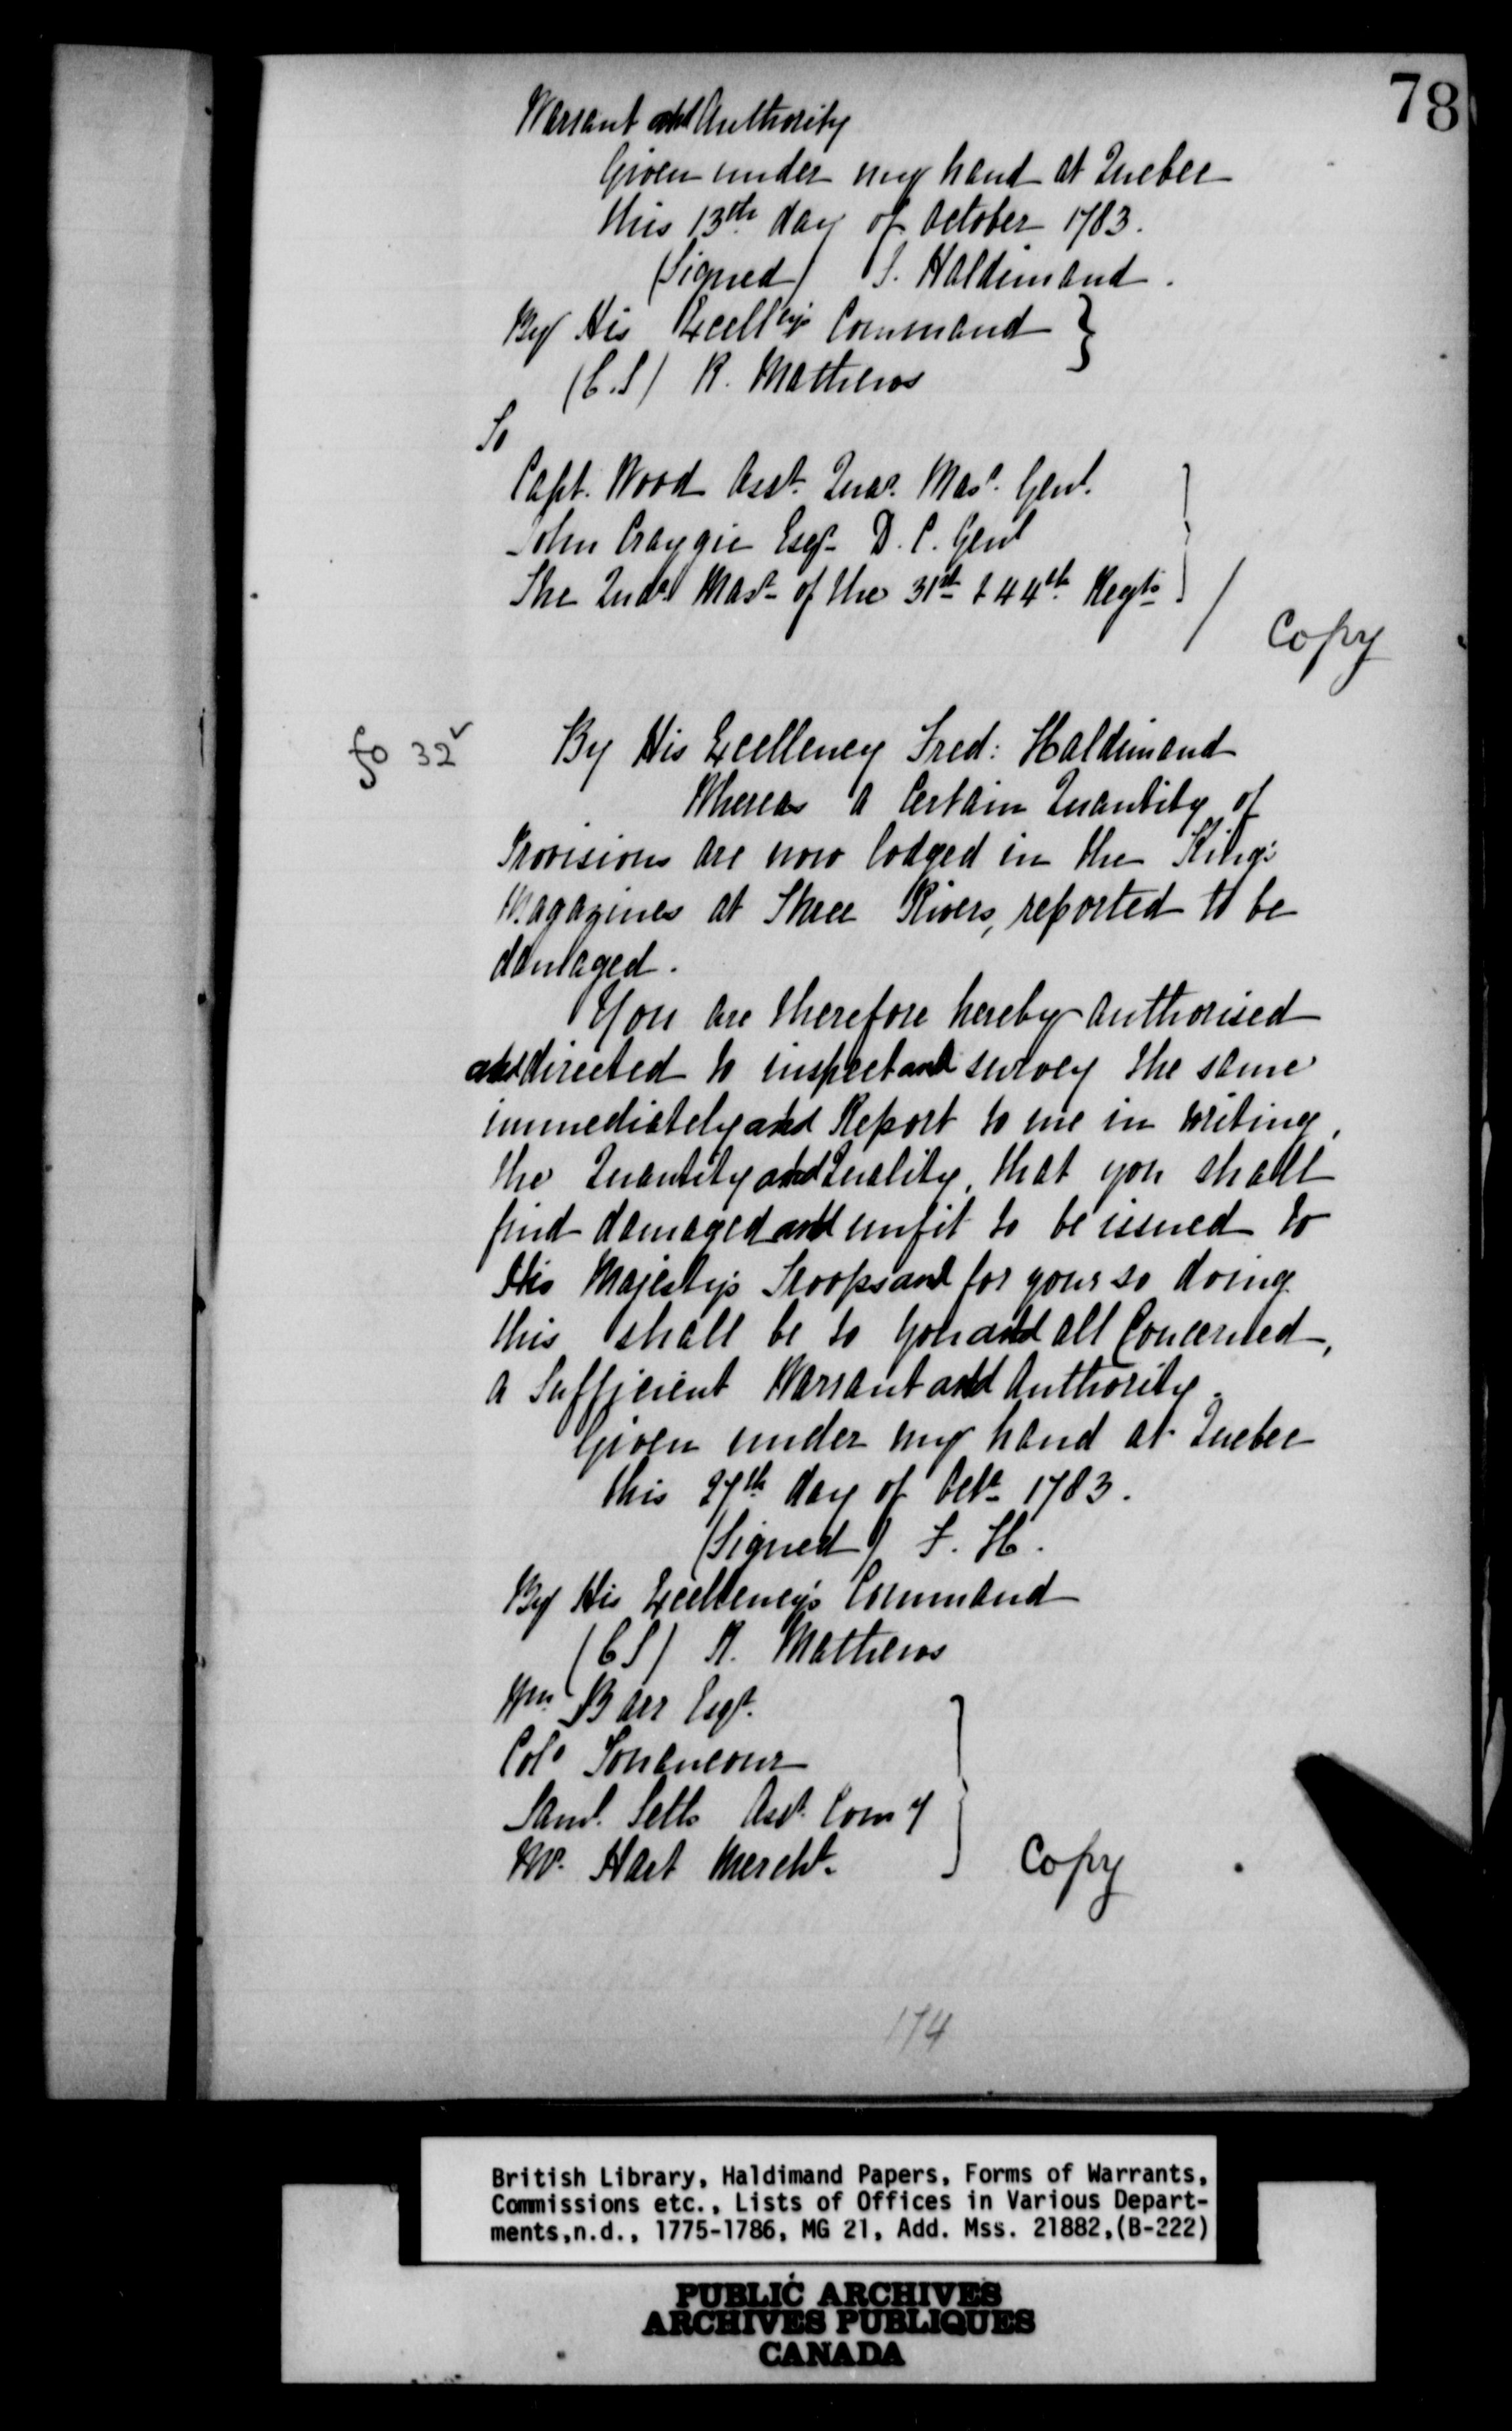 78
Warrant and Authority
Given under my hand at Quebec
this 13th day of October 1783.
(Signed) F. Haldimand.
By His Excellcy's Command }
(C.S) R. Mathews
To
Capt. Wood Asst. Quar. Masr. Genl.
John Craygie Esqr. D. C. Genl
The Quar. Masr. of the 31st & 44th Regts
Copy
fo 32v
By His Excellency Fred: Haldimand
Whereas a Certain Quantity of
Provisions are now lodged in the King's
Magazines at Three Rivers, reported to be
damaged.
You are therefore hereby authorised
and directed to inspect and survey the same
immediately and Report to me in writing,
the Quantity and Quality, that you shall
find damaged and unfit to be issued to
His Majesty's Troops and for your so doing
this shall be to you and all Concerned,
a Sufficient Warrant and Authority.
Given under my hand at Quebec
this 27th day of Octr. 1783.
(Signed) F. H.
By His Excellency's Command
(C S) R. Mathews
Wm. Barr Esqr.
Colo Tonancour
Saml. Sells Asst. Comy
Mr. Hart Mercht.
Copy
174
British Library, Haldimand Papers, Forms of Warrants,
Commissions etc., Lists of Offices in Various Depart-
ments,n.d., 1775-1786, MG 21, Add. Mss. 21882,(B-222)
PUBLIC ARCHIVES
ARCHIVES PUBLIQUES
CANADA